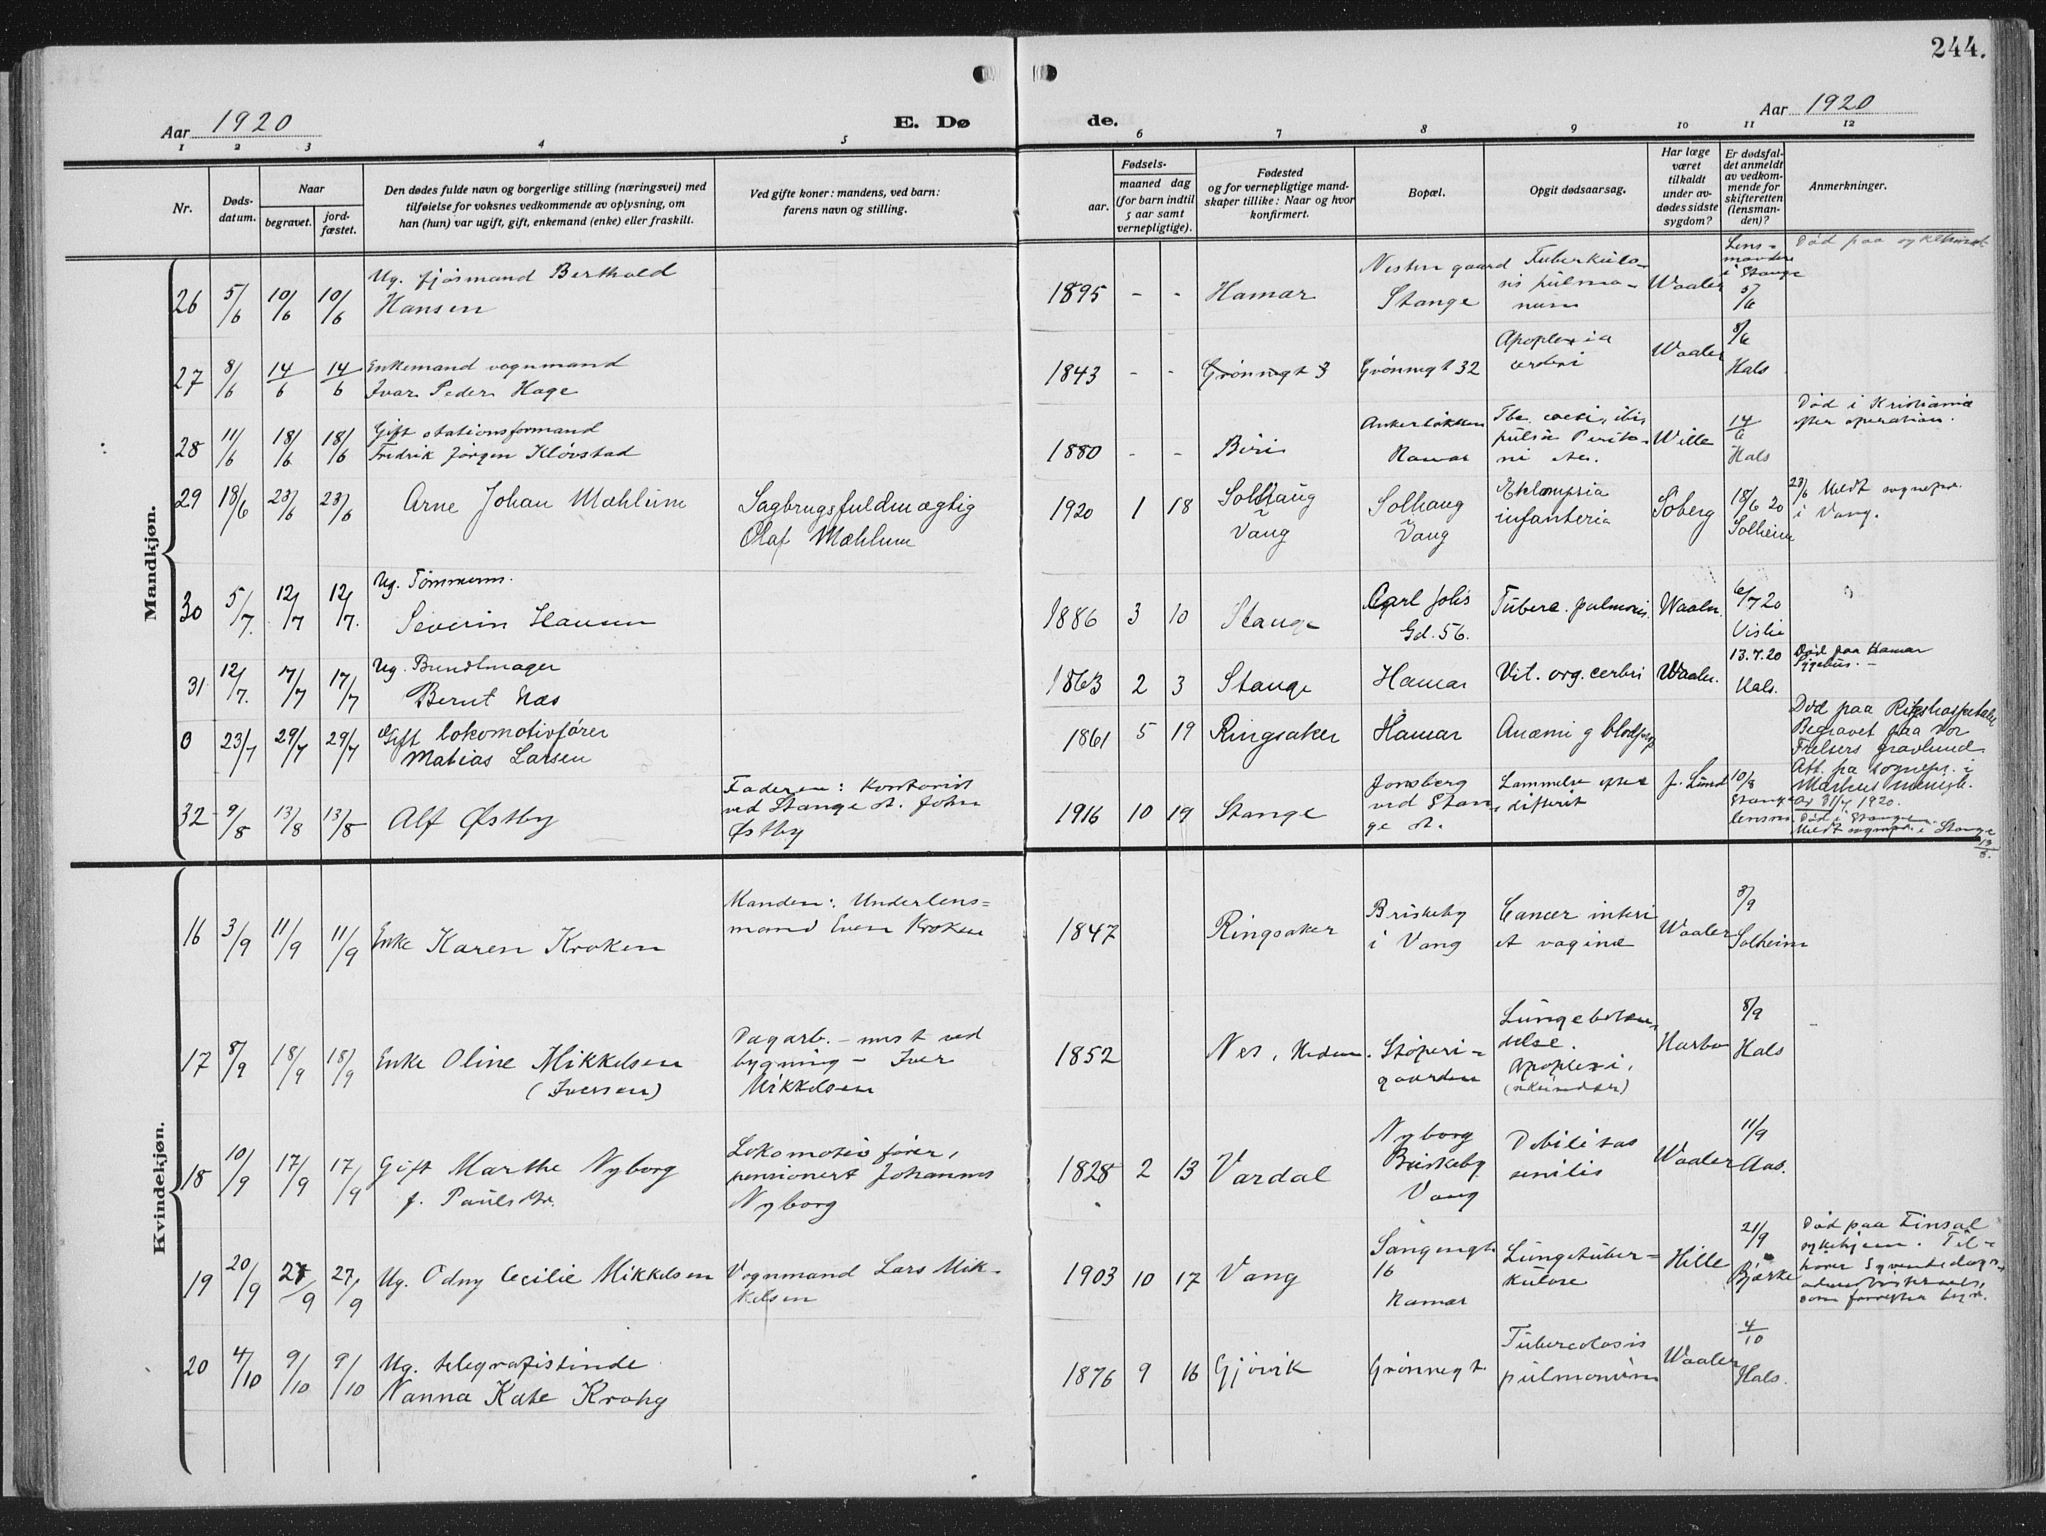 244.
Aar 1920
E. Dø
de.
Aar 1920
1 2 3 4 5 6 7 8 9 10 11 12
Nr.
Døds-
datum.
Naar
begravet.
jord-
fæstet.
Den dødes fulde navn og borgerlige stilling (næringsvei) med
tilføielse for voksnes vedkommende av oplysning, om
han (hun) var ugift, gift, enkemand (enke) eller fraskilt.
Ved gifte koner: mandens, ved barn:
farens navn og stilling.
Fødsels-
aar.
maaned dag
(for barn indtil
5 aar samt
vernepligtige).
Fødested
og for vernepligtige mand-
skaper tillike: Naar og hvor
konfirmert.
Bopæl.
Opgit dødsaarsag.
Har læge
været
tilkaldt
under av-
dødes sidste
sygdom?
Er dødsfal-
det anmeldt
av vedkom-
mende for
skifteretten
(lensman-
den)?
Anmerkninger.
Mandkjøn.
26 5/6 10/6 10/6 Ug. fjøsmand Berthold
Hansen
1895 - - Hamar
Nesten gaard
Stange
Tuberkulo-
sis pulmo-
num
Waaler
Lens-
mandene
i Stange
5/6
Død paa
27 8/6 14/6 14/6 Enkemand vognmand
Ivar Peder Hage
1843 - - Grønnegt 3 Grønnegt 32
Apoplexia
cerebri
Waaler
8/6
Hals
28 11/6 18/6 18/6 Gift stationsformand
Fredrik Jørgen Kløvstad
1880 - - Biri
Ankerløkken
Hamar
Wille
14/6
Hals
Død i Kristiania
efter operation.
29 18/6 23/6 23/6 Arne Johan Mæhlum
Sagbrugsfuldmægtig
Olaf Mæhlum
1920 1 18 Solhaug
Vang
Solhaug
Vang
Eklampsia
infanteria
Soberg
18/6 20
Solheim
23/6 Meldt sognepr.
i Vang.
30 5/7. 12/7 12/7. Ug. Tømmerm.
Severin Hansen
1886 3 10 Stange
Carl Johs
Gd. 56.
Tuberc. pulmonis. Waaler
6/7 20
Vislie
31 12/7. 17/7 17/7 Ug. Bundtmager
Bernt Næs
1863 2 3 Stange Hamar Vit. org. cerbri Waaler.
13.7.20
Hals.
Død paa Hamar
Sygehus. -
0 23/7 29/7 29/7 Gift lokomotivfører
Matias Larsen
1861 5 19 Ringsaker Hamar Anæmi
Død paa Rikshospitalet
Begravet paa Vor
Frelsers gravlund
Att. fra sognepr. i
Markus menigh.
31/7 1920.
32 9/8 13/8 13/8 Alf Østby
Faderen: Kontorist
ved Stange st. John
Østby
1916 10 19 Stange
Jonsberg
ved Stan-
ge st.
Lammelse efter
difterit
f. Lund
10/8
Stange
lensm.
Død i Stange.
Meldt sognepr. i Stange
13/8.
Kvindekjøn.
16 3/9 11/9 11/9 Enke Karen Kroken
Manden: Underlens=
mand Even Kroken
1847 Ringsaker
Briskeby
i Vang
Cancer interi
et vaginæ
Waaler
3/9
Solheim
17 8/9 18/9 18/9 Enke Oline Mikkelsen
(Iversen)
Dagarb. - mest ved
bygning - Iver
Mikkelsen
1852 Nes, Hedem.
Støperi-
gaarden
Lungebeten-
delse.
Apoplexi,
Harbo
8/9
Hals
18 10/9 17/9 17/9 Gift Marthe Nyborg
f. Paulsdtr.
Lokomotivfører,
pensionert Johannes
Nyborg
1828 2 13 Vardal
Nyborg
Briskeby
Vang
Debilitas
senilis
Waaler
11/9
Aas.
19 20/9 27/9 27/9 Ug. Odny Cecilie Mikkelsen
Vognmand Lars Mik-
kelsen
1903 10 17 Vang
Sangengt
16
Hamar
Lungetuber=
kulose
Hille
21/9
Bjerke
Død paa Finsal
sykehjem. Til-
hører Syvendedags-
20 4/10 9/10 9/10 Ug. telegrafistinde
Nanna Kate Krohg
1876 9 16 Gjøvik Grønnegt
Tuberculosis
pulmonum
Waaler
4/10
Hals.